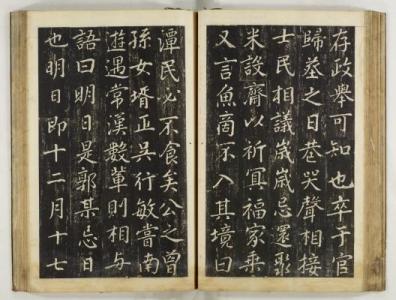 存政舉可知也卒于官
歸葬之日巷哭聲相接
士民相議歲歲忌還聚
米設齊以祈冥福家乘
又言魚商不入其境曰
潭民必不食矣公之曾
孫女壻正吳行敏嘗南
遊遇常漢數輩則相与
語曰明日是郭某忌日
也明日即十二月十七